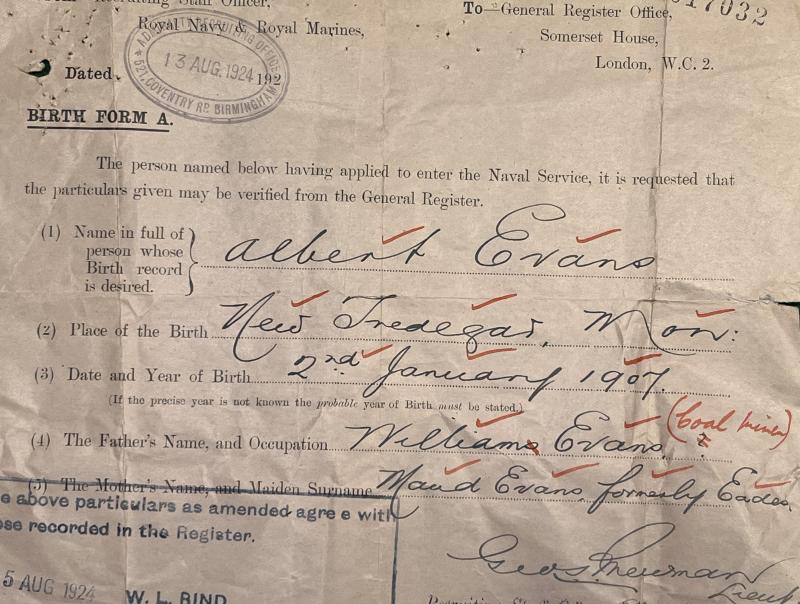 Recruiting Staff Officer,
Royal Navy & Royal Marines,
To—General Register Office,
Somerset House,
London, W.C. 2.
17032
Dated 192
13 AUG. 1924
521, COVENTRY RD. BIRMINGHAM
BIRTH FORM A.
The person named below having applied to enter the Naval Service, it is requested that
the particulars given may be verified from the General Register.
(1) Name in full of
person whose
Birth record
is desired.
Albert Evans
(2) Place of the Birth New Tredegar, Mon:
(3) Date and Year of Birth 2nd January 1907.
(If the precise year is not known the probable year of Birth must be stated.)
(4) The Father's Name, and Occupation Williams Evans, (Coal Miner)
(5) The Mother's Name, and Maiden Surname Maud Evans, formerly Eades.
e above particulars as amended agree with
ose recorded in the Register.
Geo S Newman
Lieut
5 AUG 1924
W. L. RIND